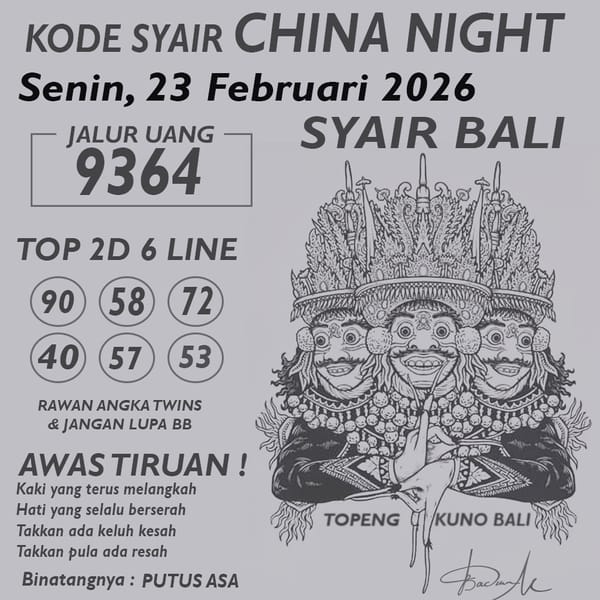 KODE SYAIR CHINA NIGHT
Senin, 23 Februari 2026
SYAIR BALI
JALUR UANG
9364
TOP 2D 6 LINE
90 58 72
40 57 53
RAWAN ANGKA TWINS
& JANGAN LUPA BB
AWAS TIRUAN !
Kaki yang terus melangkah
Hati yang selalu berserah
Takkan ada keluh kesah
Takkan pula ada resah
Binatangnya : PUTUS ASA
TOPENG KUNO BALI